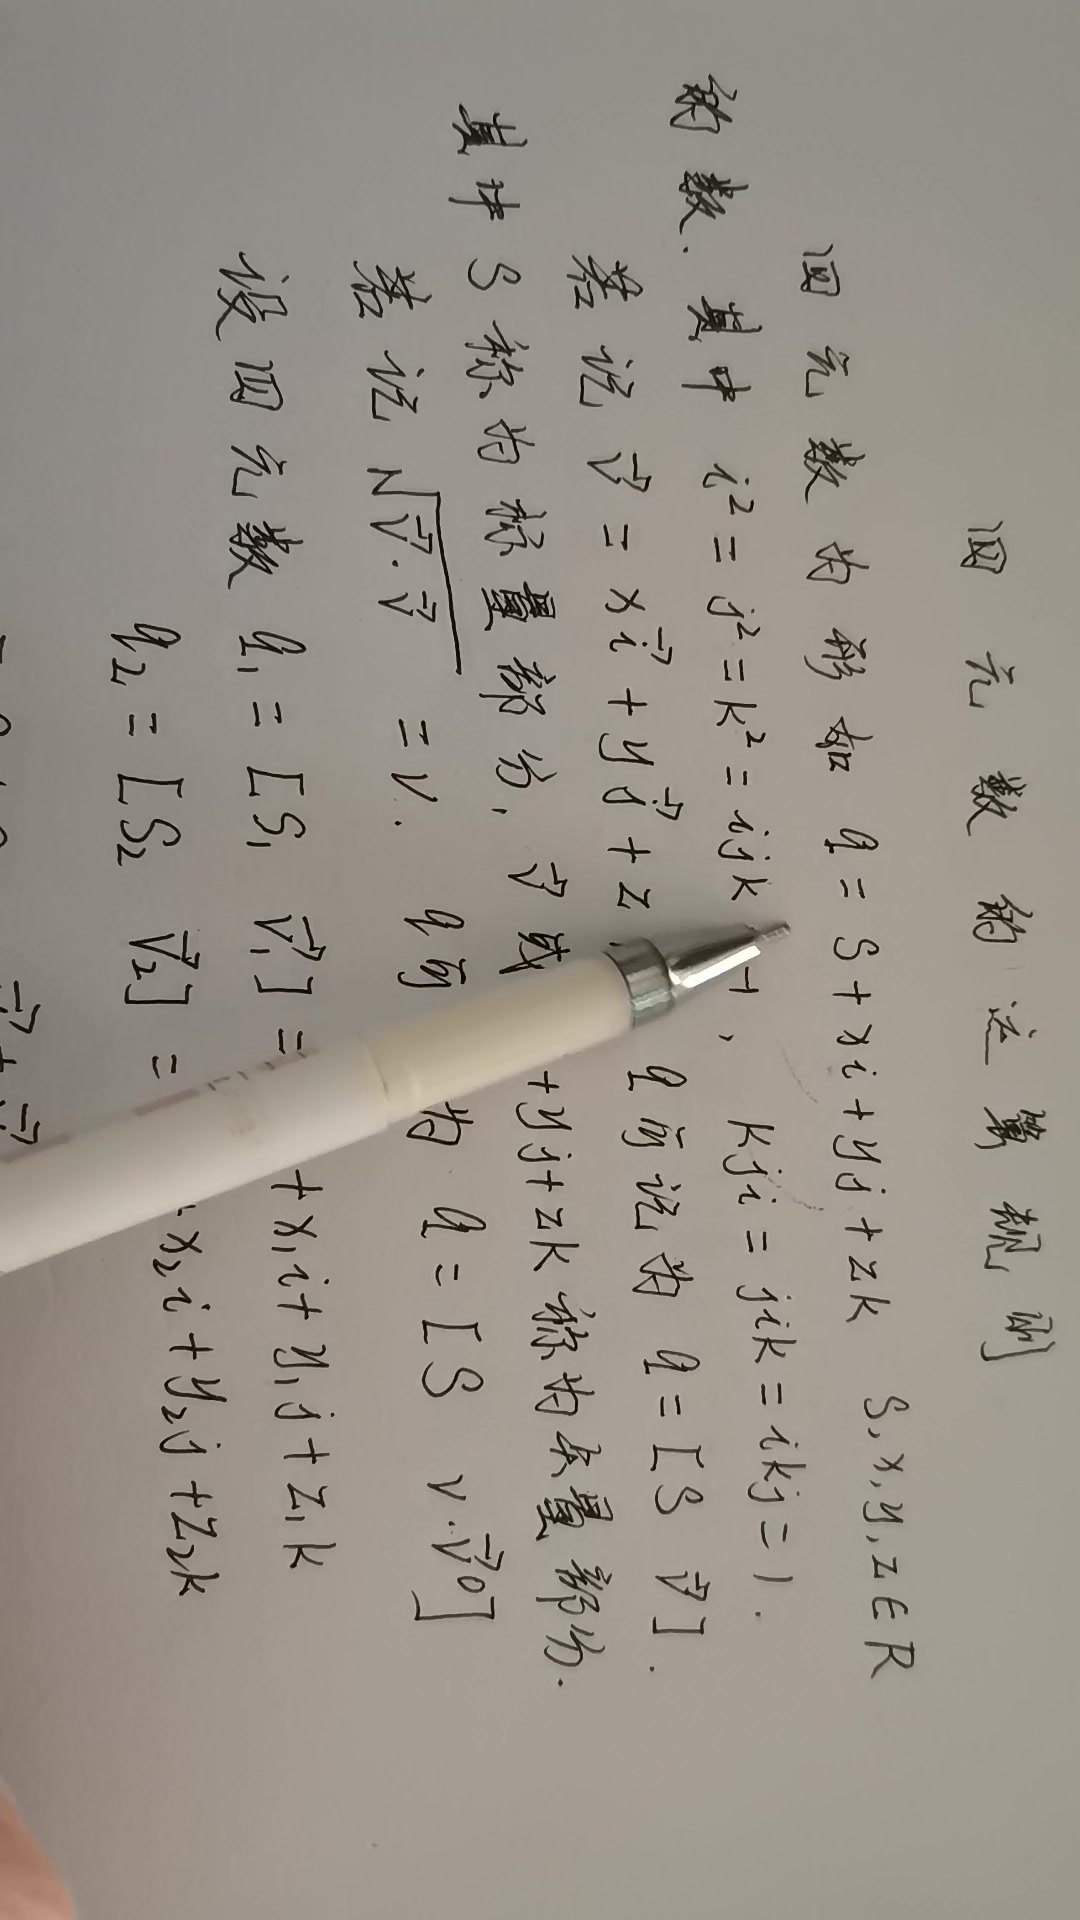 四元数的运算规则
四元数为形如 q = S + xi + yj + zk S, x, y, z ∈ R
的数. 其中 i² = j² = k² = ijk -1, kji = jik = ikj = 1.
若记 v⃗ = xi⃗ + yj⃗ + z q可记为 q = [S v⃗].
其中 S 称为标量部分, v⃗ 或 +yj+zk 称为矢量部分.
若记 √(v⃗·v⃗) = v. q可 为 q = [S v·v⃗⁰]
设四元数 q₁ = [S₁ v⃗₁] = + x₁i + y₁j + z₁k
q₂ = [S₂ v⃗₂] = x₂i + y₂j + z₂k